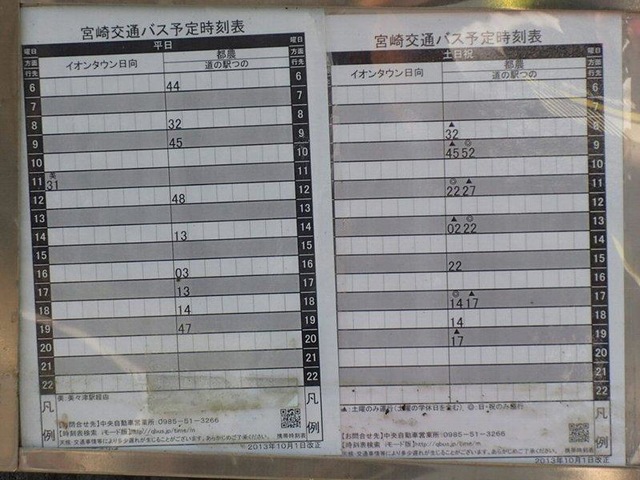 宮崎交通バス予定時刻表
曜日 平日 曜日
方面 イオンタウン日向 都農 方面
行先 道の駅つの 行先
6 44 6
7 7
8 32 8
9 45 9
10 10
11 美 31 11
12 48 12
13 13
14 13 14
15 15
16 03 16
17 13 17
18 14 18
19 47 19
20 20
21 21
22 22
凡例 美 美々津駅経由
【お問合せ先】中央自動車営業所 0985-51-3266
【時刻表検索 iモード版】http://qbus.jp/time/m
天候・交通事情等により多少遅れが生じることがございます。あらかじめご了承ください。
携帯時刻表
2013年10月1日改正
宮崎交通バス予定時刻表
土日祝 曜日
イオンタウン日向 都農 方面
道の駅つの 行先
6
7
▲ 32 8
▲ ◎ 45 52 9
10
◎ ▲ 22 27 11
12
▲ ◎ 02 22 13
14
22 15
16
◎ ▲ 14 17 17
14 18
▲ 17 19
20
21
22
凡例 ▲ 土曜のみ運行(土曜の学休日を含む) ◎ 日・祝のみ運行
【お問合せ先】中央自動車営業所 0985-51-3266
【時刻表検索 iモード版】http://qbus.jp/time/m
天候・交通事情等により多少遅れが生じることがございます。あらかじめご了承ください。
携帯時刻表
2013年10月1日改正